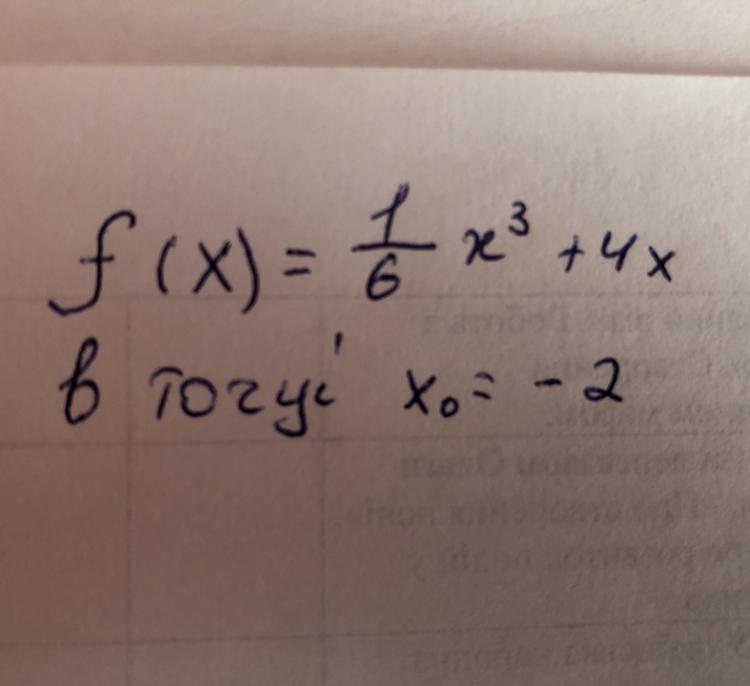 f(x) = 1/6 x³ + 4x
в точці x₀ = -2